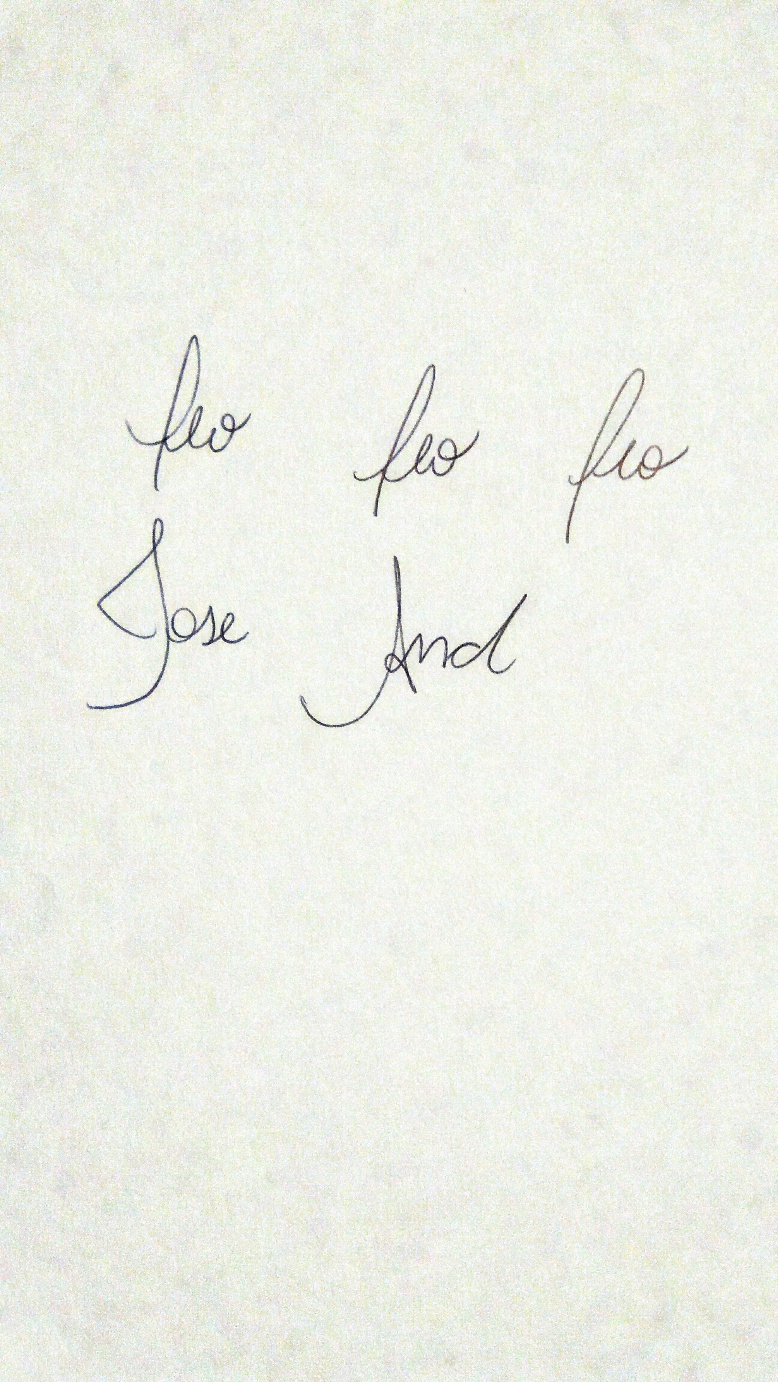 leo leo leo
Jose And